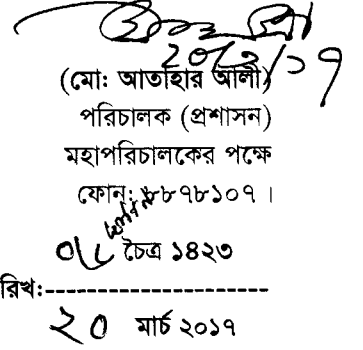 ২০/৩/১৭
(মো: আতাহার আলী)
পরিচালক (প্রশাসন)
মহাপরিচালকের পক্ষে
ফোন: ৮৮৭৮১০৭ ।
চৈত্র ১৪২৩
রিখ:-----------------------
২০ মার্চ ২০১৭